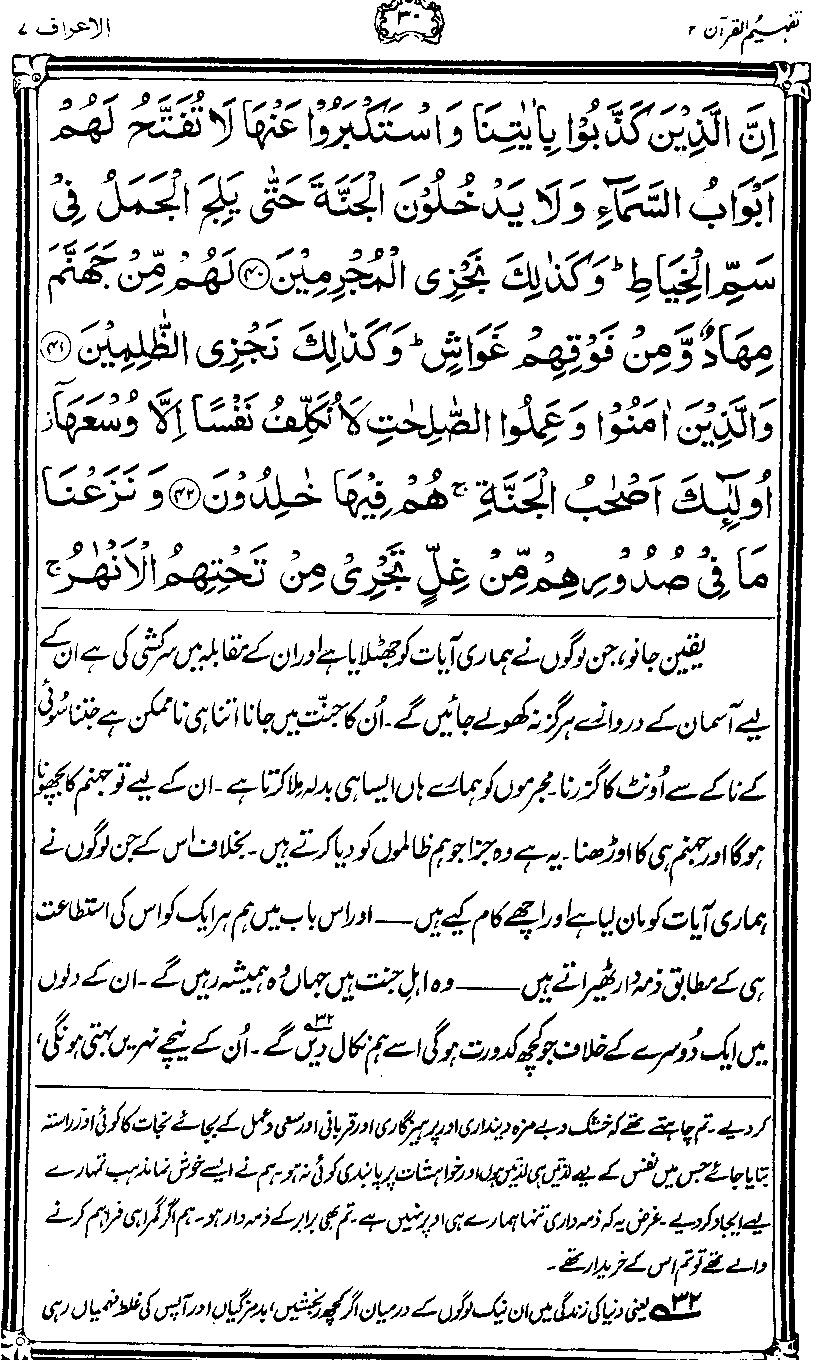 تفہیم القرآن ۲
۳۰
الاعراف ۷
اِنَّ الَّذِیْنَ کَذَّبُوْا بِاٰیٰتِنَا وَاسْتَکْبَرُوْا عَنْهَا لَا تُفَتَّحُ لَهُمْ
اَبْوَابُ السَّمَآءِ وَلَا یَدْخُلُوْنَ الْجَنَّةَ حَتّٰی یَلِجَ الْجَمَلُ فِیْ
سَمِّ الْخِیَاطِ ؕ وَکَذٰلِكَ نَجْزِی الْمُجْرِمِیْنَ ﴿۴۰﴾ لَهُمْ مِّنْ جَهَنَّمَ
مِهَادٌ وَّمِنْ فَوْقِهِمْ غَوَاشٍ ؕ وَکَذٰلِكَ نَجْزِی الظّٰلِمِیْنَ ﴿۴۱﴾
وَالَّذِیْنَ اٰمَنُوْا وَعَمِلُوا الصّٰلِحٰتِ لَا نُکَلِّفُ نَفْسًا اِلَّا وُسْعَهَاۤ ز
اُولٰٓئِكَ اَصْحٰبُ الْجَنَّةِ ۚ هُمْ فِیْهَا خٰلِدُوْنَ ﴿۴۲﴾ وَ نَزَعْنَا
مَا فِیْ صُدُوْرِهِمْ مِّنْ غِلٍّ تَجْرِیْ مِنْ تَحْتِهِمُ الْاَنْهٰرُ ۚ
یقین جانو، جن لوگوں نے ہماری آیات کو جھٹلایا ہے اور ان کے مقابلہ میں سرکشی کی ہے ان کے
لیے آسمان کے دروازے ہرگز نہ کھولے جائیں گے۔ اُن کا جنّت میں جانا اتنا ہی ناممکن ہے جتنا سُوئی
کے ناکے سے اُونٹ کا گزرنا۔ مجرموں کو ہمارے ہاں ایسا ہی بدلہ ملا کرتا ہے۔ ان کے لیے تو جہنم کا بچھونا
ہوگا اور جہنم ہی کا اوڑھنا۔ یہ ہے وہ جزا جو ہم ظالموں کو دیا کرتے ہیں۔ بخلاف اس کے جن لوگوں نے
ہماری آیات کو مان لیا ہے اور اچھے کام کیے ہیں —— اور اس باب میں ہم ہر ایک کو اس کی استطاعت
ہی کے مطابق ذمہ دار ٹھیراتے ہیں —— وہ اہلِ جنت ہیں جہاں وہ ہمیشہ رہیں گے۔ ان کے دلوں
میں ایک دُوسرے کے خلاف جو کچھ کدورت ہوگی اسے ہم نکال دیں ۳۲ گے۔ اُن کے نیچے نہریں بہتی ہونگی،
کر دیے۔ تم چاہتے تھے کہ خشک و بے مزہ دینداری اور پرہیزگاری اور قربانی اور سعی و عمل کے بجائے نجات کا کوئی اور راستہ
بتایا جائے جس میں نفس کے لیے لذتیں ہی لذتیں ہوں اور خواہشات پر پابندی کوئی نہ ہو، ہم نے ایسے خوش نما مذہب تمہارے
لیے ایجاد کر دیے۔ غرض یہ کہ ذمہ داری تنہا ہمارے ہی اوپر نہیں ہے۔ تم بھی برابر کے ذمہ دار ہو۔ ہم اگر گمراہی فراہم کرنے
والے تھے تو تم اس کے خریدار تھے۔
۳۲ یعنی دنیا کی زندگی میں ان نیک لوگوں کے درمیان اگر کچھ رنجشیں، بدمزگیاں اور آپس کی غلط فہمیاں رہی